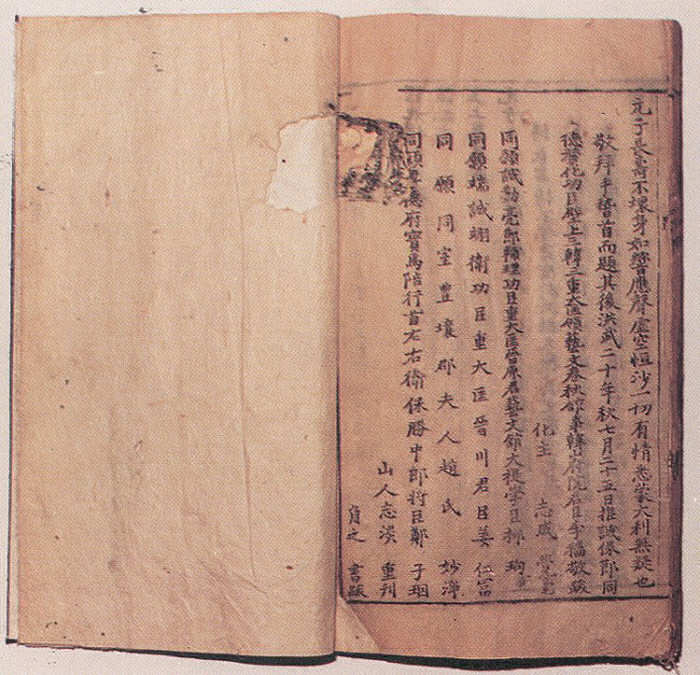 元子長壽不壞身如響應聲虛空恒沙一切有情悉蒙大利無疑也
敬拜手稽首而題其後洪武二十年秋七月二十五日推誠保節同
德贊化功臣壁上三韓三重大匡領藝文春秋館事韓山府院君臣李穡敬跋
化主 志
同願誠勤亮節理功臣重大匡晉原君藝文館大提學臣柳珣
同願端誠翊衛功臣重大匡晉川君臣姜仁富
同願同室豊壤郡夫人趙氏妙淨
同願德府寶馬陪行首左右衛保勝中郎將臣鄭子
山人志 重刋
之 書跋